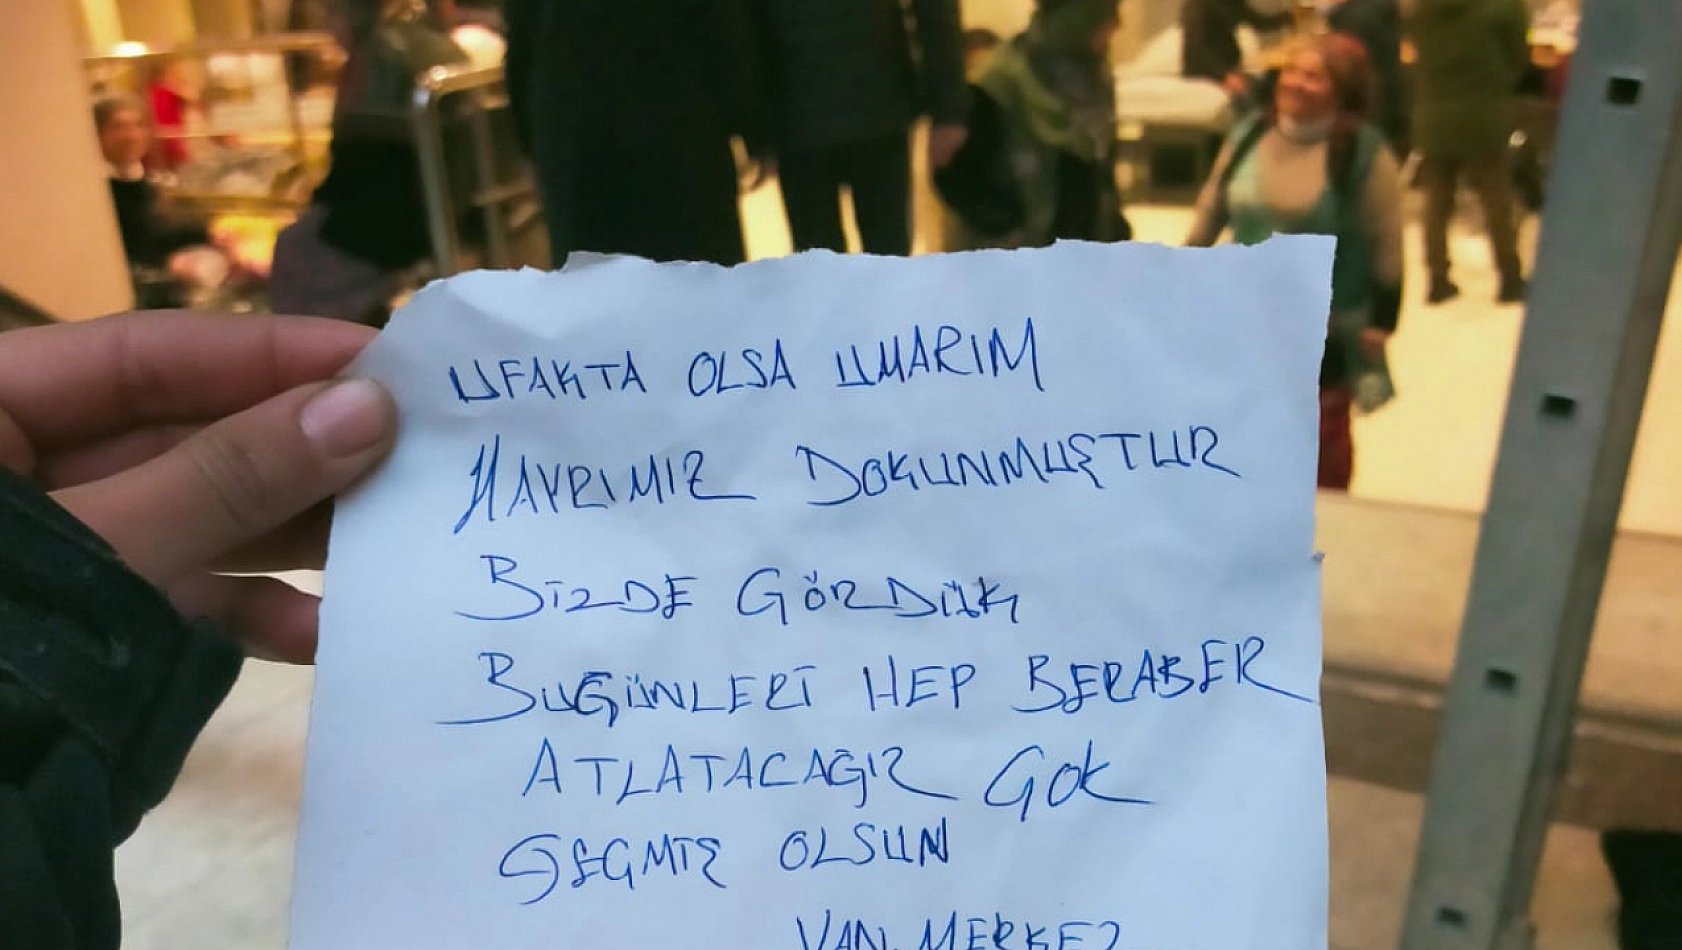 UFAKTA OLSA UMARIM
HAYRIMIZ DOKUNMUŞTUR
BİZDE GÖRDÜK
BUGÜNLERİ HEP BERABER
ATLATACAĞIZ ÇOK
GEÇMİŞ OLSUN
VAN MERKEZ